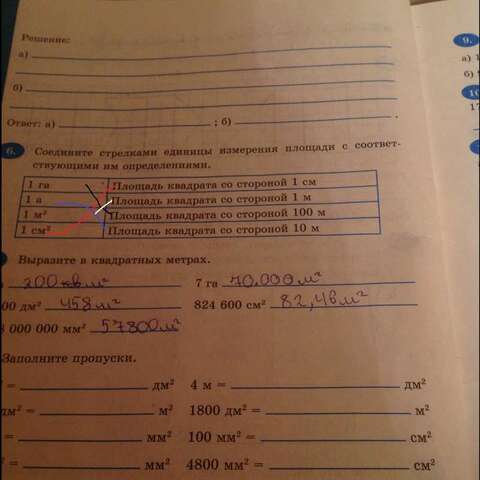 Решение:
а)
б)
Ответ: а) ; б) .
6. Соедините стрелками единицы измерения площади с соответ-
ствующими им определениями.
1 га Площадь квадрата со стороной 1 см
1 а Площадь квадрата со стороной 1 м
1 м² Площадь квадрата со стороной 100 м
1 см² Площадь квадрата со стороной 10 м
Выразите в квадратных метрах.
200 кв м² 7 га 70.000 м²
00 дм² 458 м² 824 600 см² 82,46 м²
000 000 мм² 57800 м²
Заполните пропуски.
= дм² 4 м = дм²
дм² = м² 1800 дм² = м²
= мм² 100 мм² = см²
= мм² 4800 мм² = см²
9.
а) 1
б)
10
17